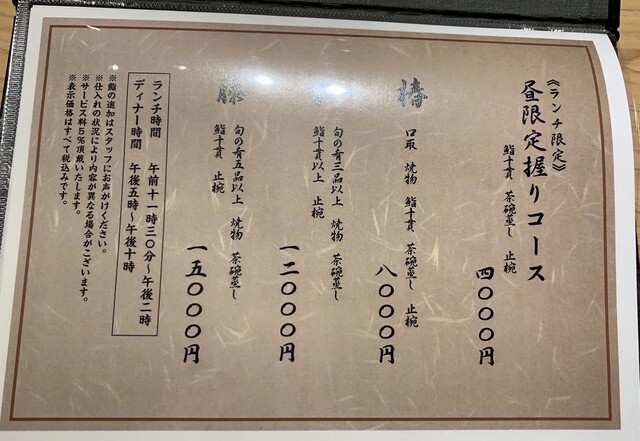 《ランチ限定》
昼限定握りコース
鮨十貫 茶碗蒸し 止椀
四〇〇〇円
椿
口取 焼物 鮨十貫 茶碗蒸し 止椀
八〇〇〇円
旬の肴三品以上 焼物 茶碗蒸し
鮨十貫以上 止椀
一二〇〇〇円
藤
旬の肴五品以上 焼物 茶碗蒸し
鮨十貫 止椀
一五〇〇〇円
ランチ時間 午前十一時三〇分～午後二時
ディナー時間 午後五時～午後十時
※鮨の追加はスタッフにお声がけください。
※仕入れの状況により内容が異なる場合がございます。
※サービス料5％頂戴いたします。
※表示価格はすべて税込みです。